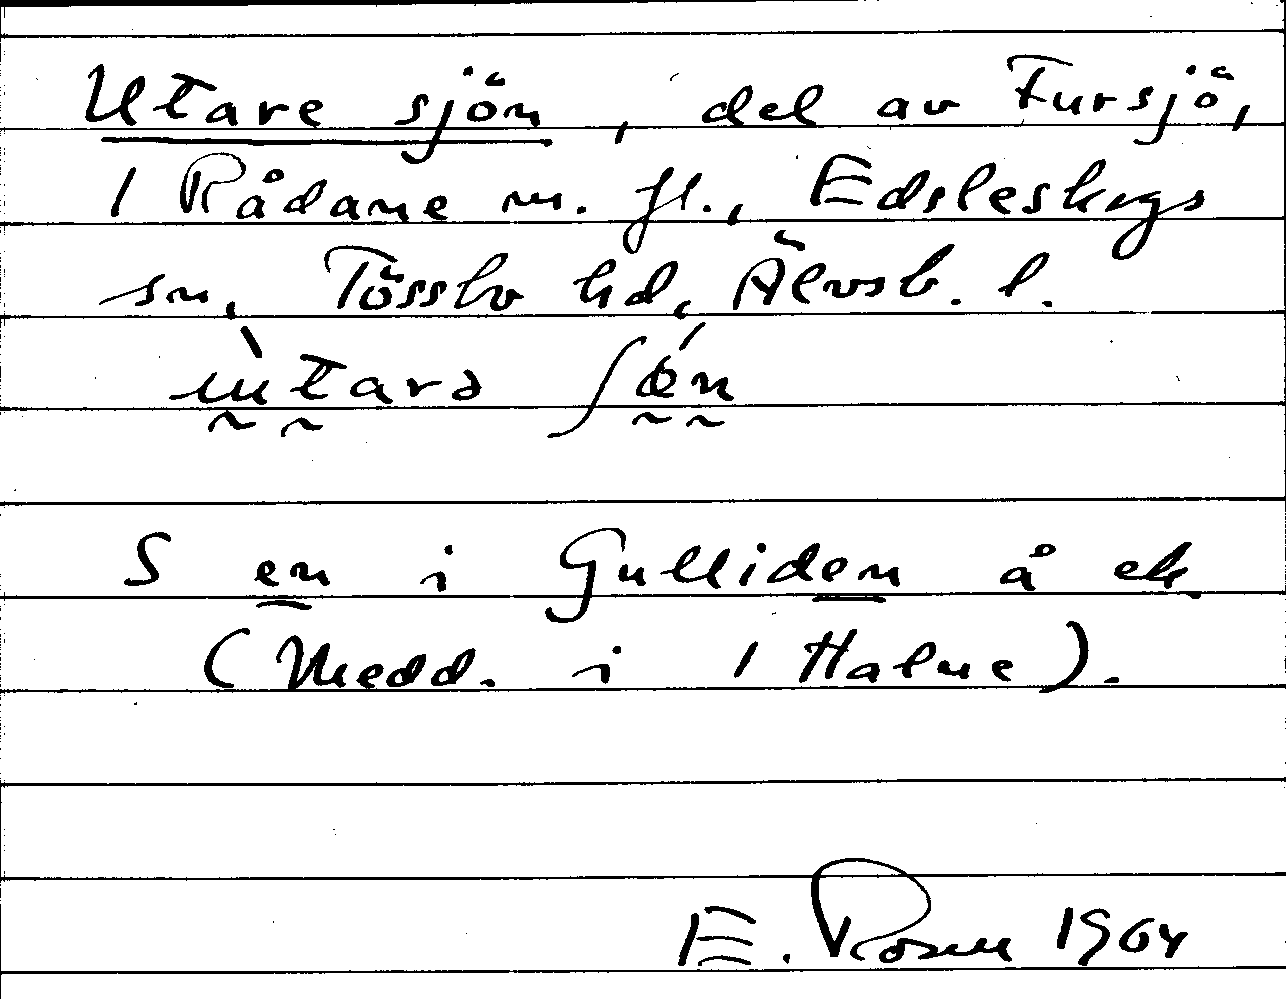 Utare sjön, del av Fursjö,
1 Rådane m. fl., Edsleskogs
sn, Tössbo hd, Älvsb. l.
ùtarə ʃǿn
S en i Gulliden å ek.
(Medd. i 1 Halne).
E. Rosen 1964